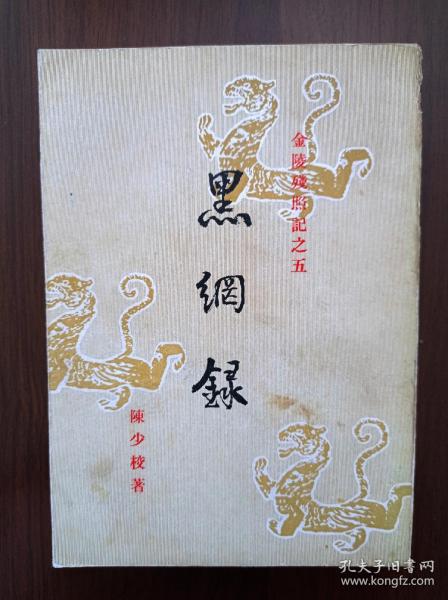 金陵殘照記之五
黑網錄
陳少校著
孔夫子旧书网
www.kongfz.com